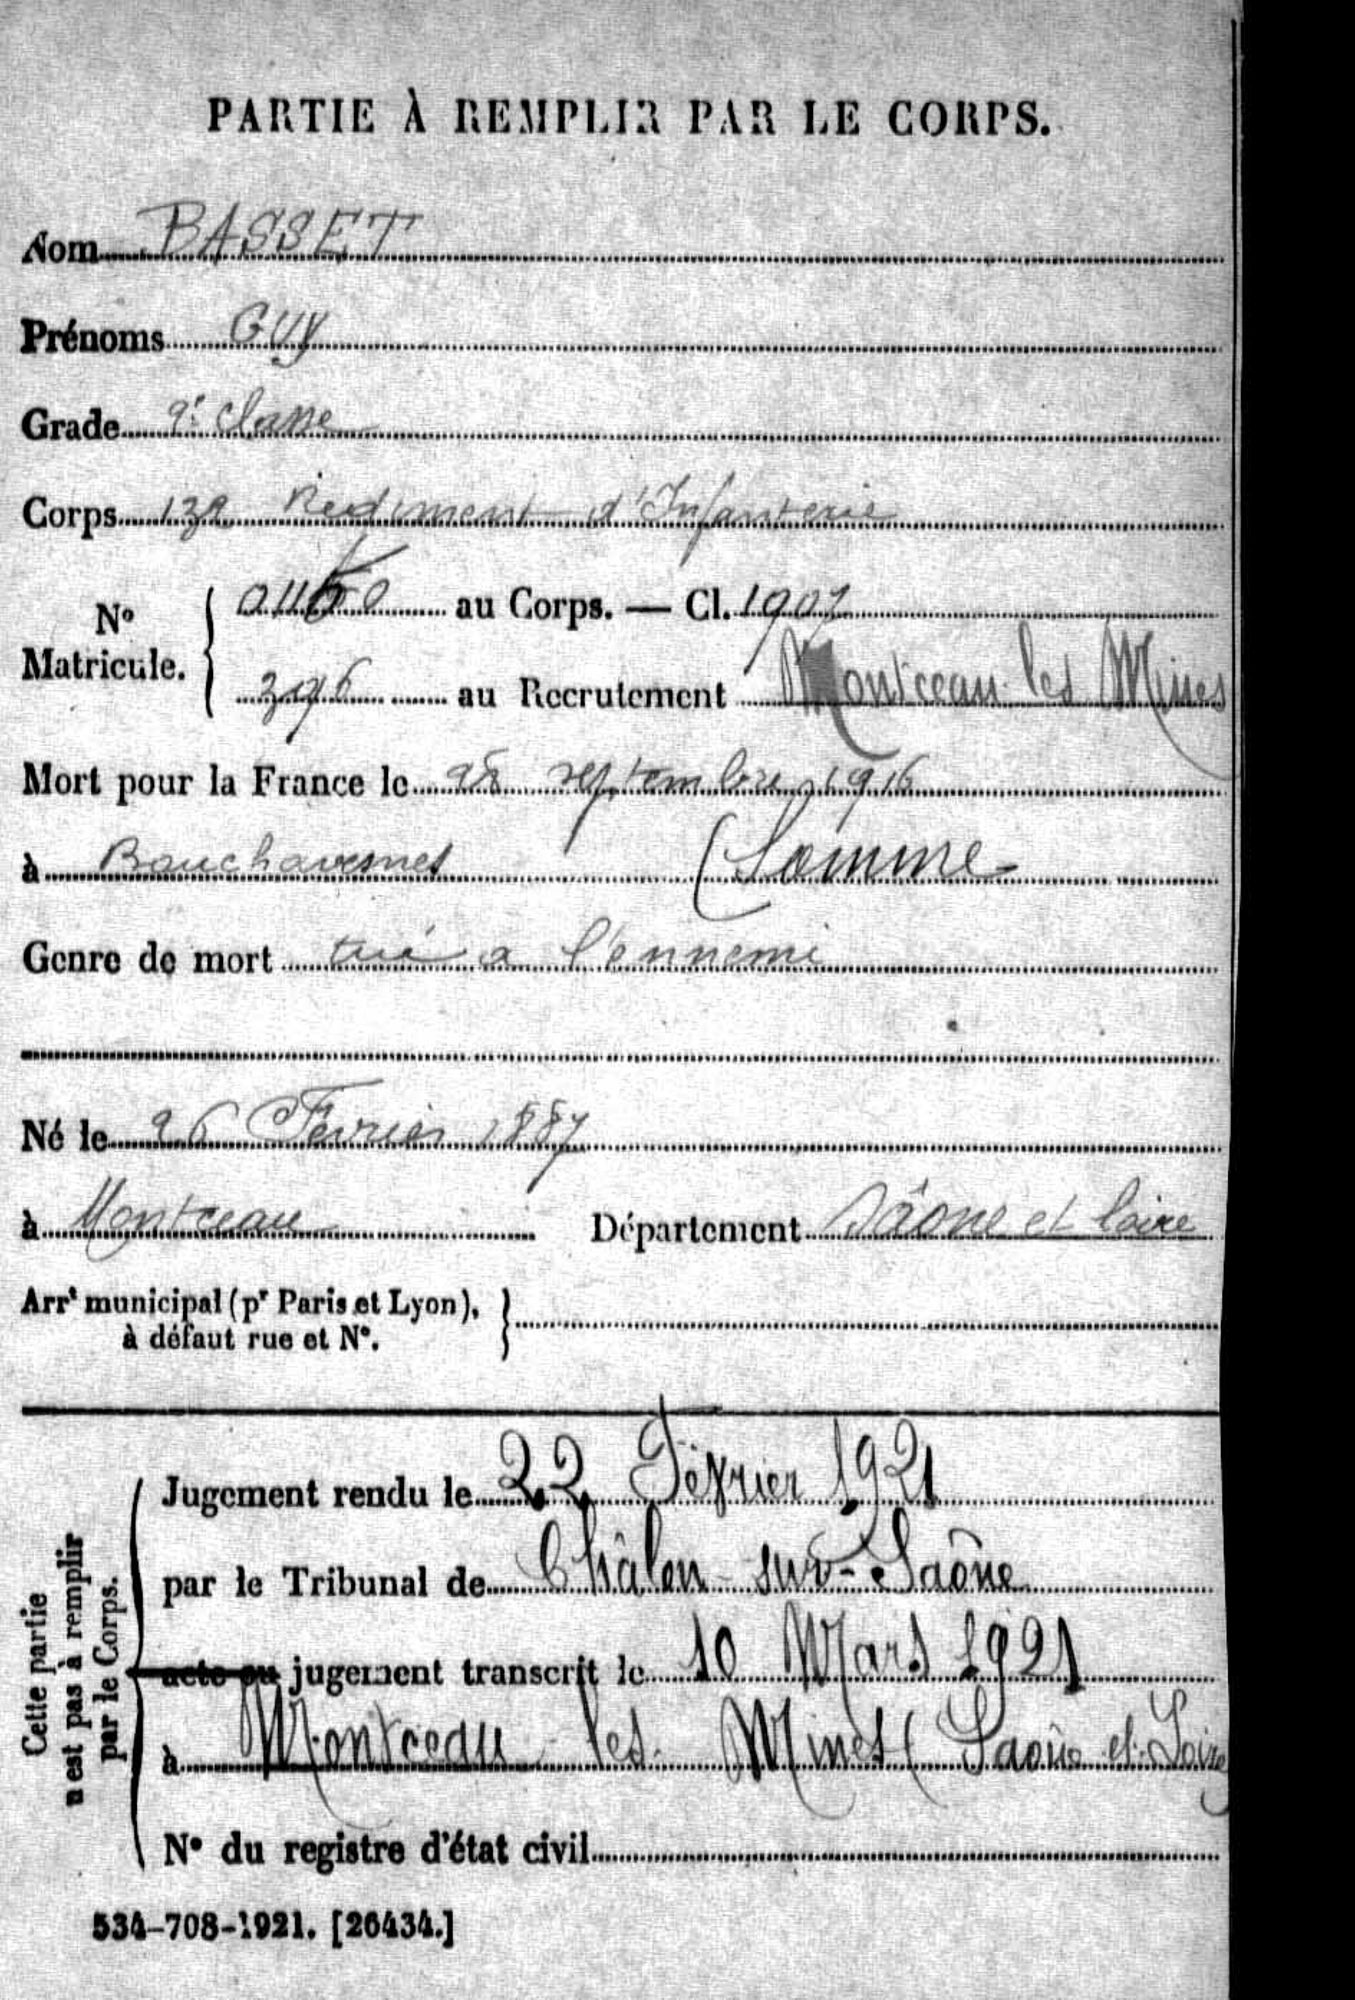 PARTIE À REMPLIR PAR LE CORPS.
Nom BASSET
Prénoms Guy
Grade 2e classe
Corps 132 Regiment d'Infanterie
N° Matricule. { au Corps. — Cl. 1907
396 au Recrutement Montceau les Mines
Mort pour la France le 28 septembre 1916
à Bouchavesnes (Somme
Genre de mort tué a l'ennemi
Né le 26 Fevrier 1887
à Montceau Département Saône et Loire
Arrt municipal (pr Paris et Lyon), à défaut rue et N°. }
Cette partie n'est pas à remplir par le Corps.
Jugement rendu le 22 Février 1921
par le Tribunal de Châlon-sur-Saône
acte ou jugement transcrit le 10 Mars 1921
à Montceau les Mines (Saône et Loire
N° du registre d'état civil
534-708-1921. [26434.]